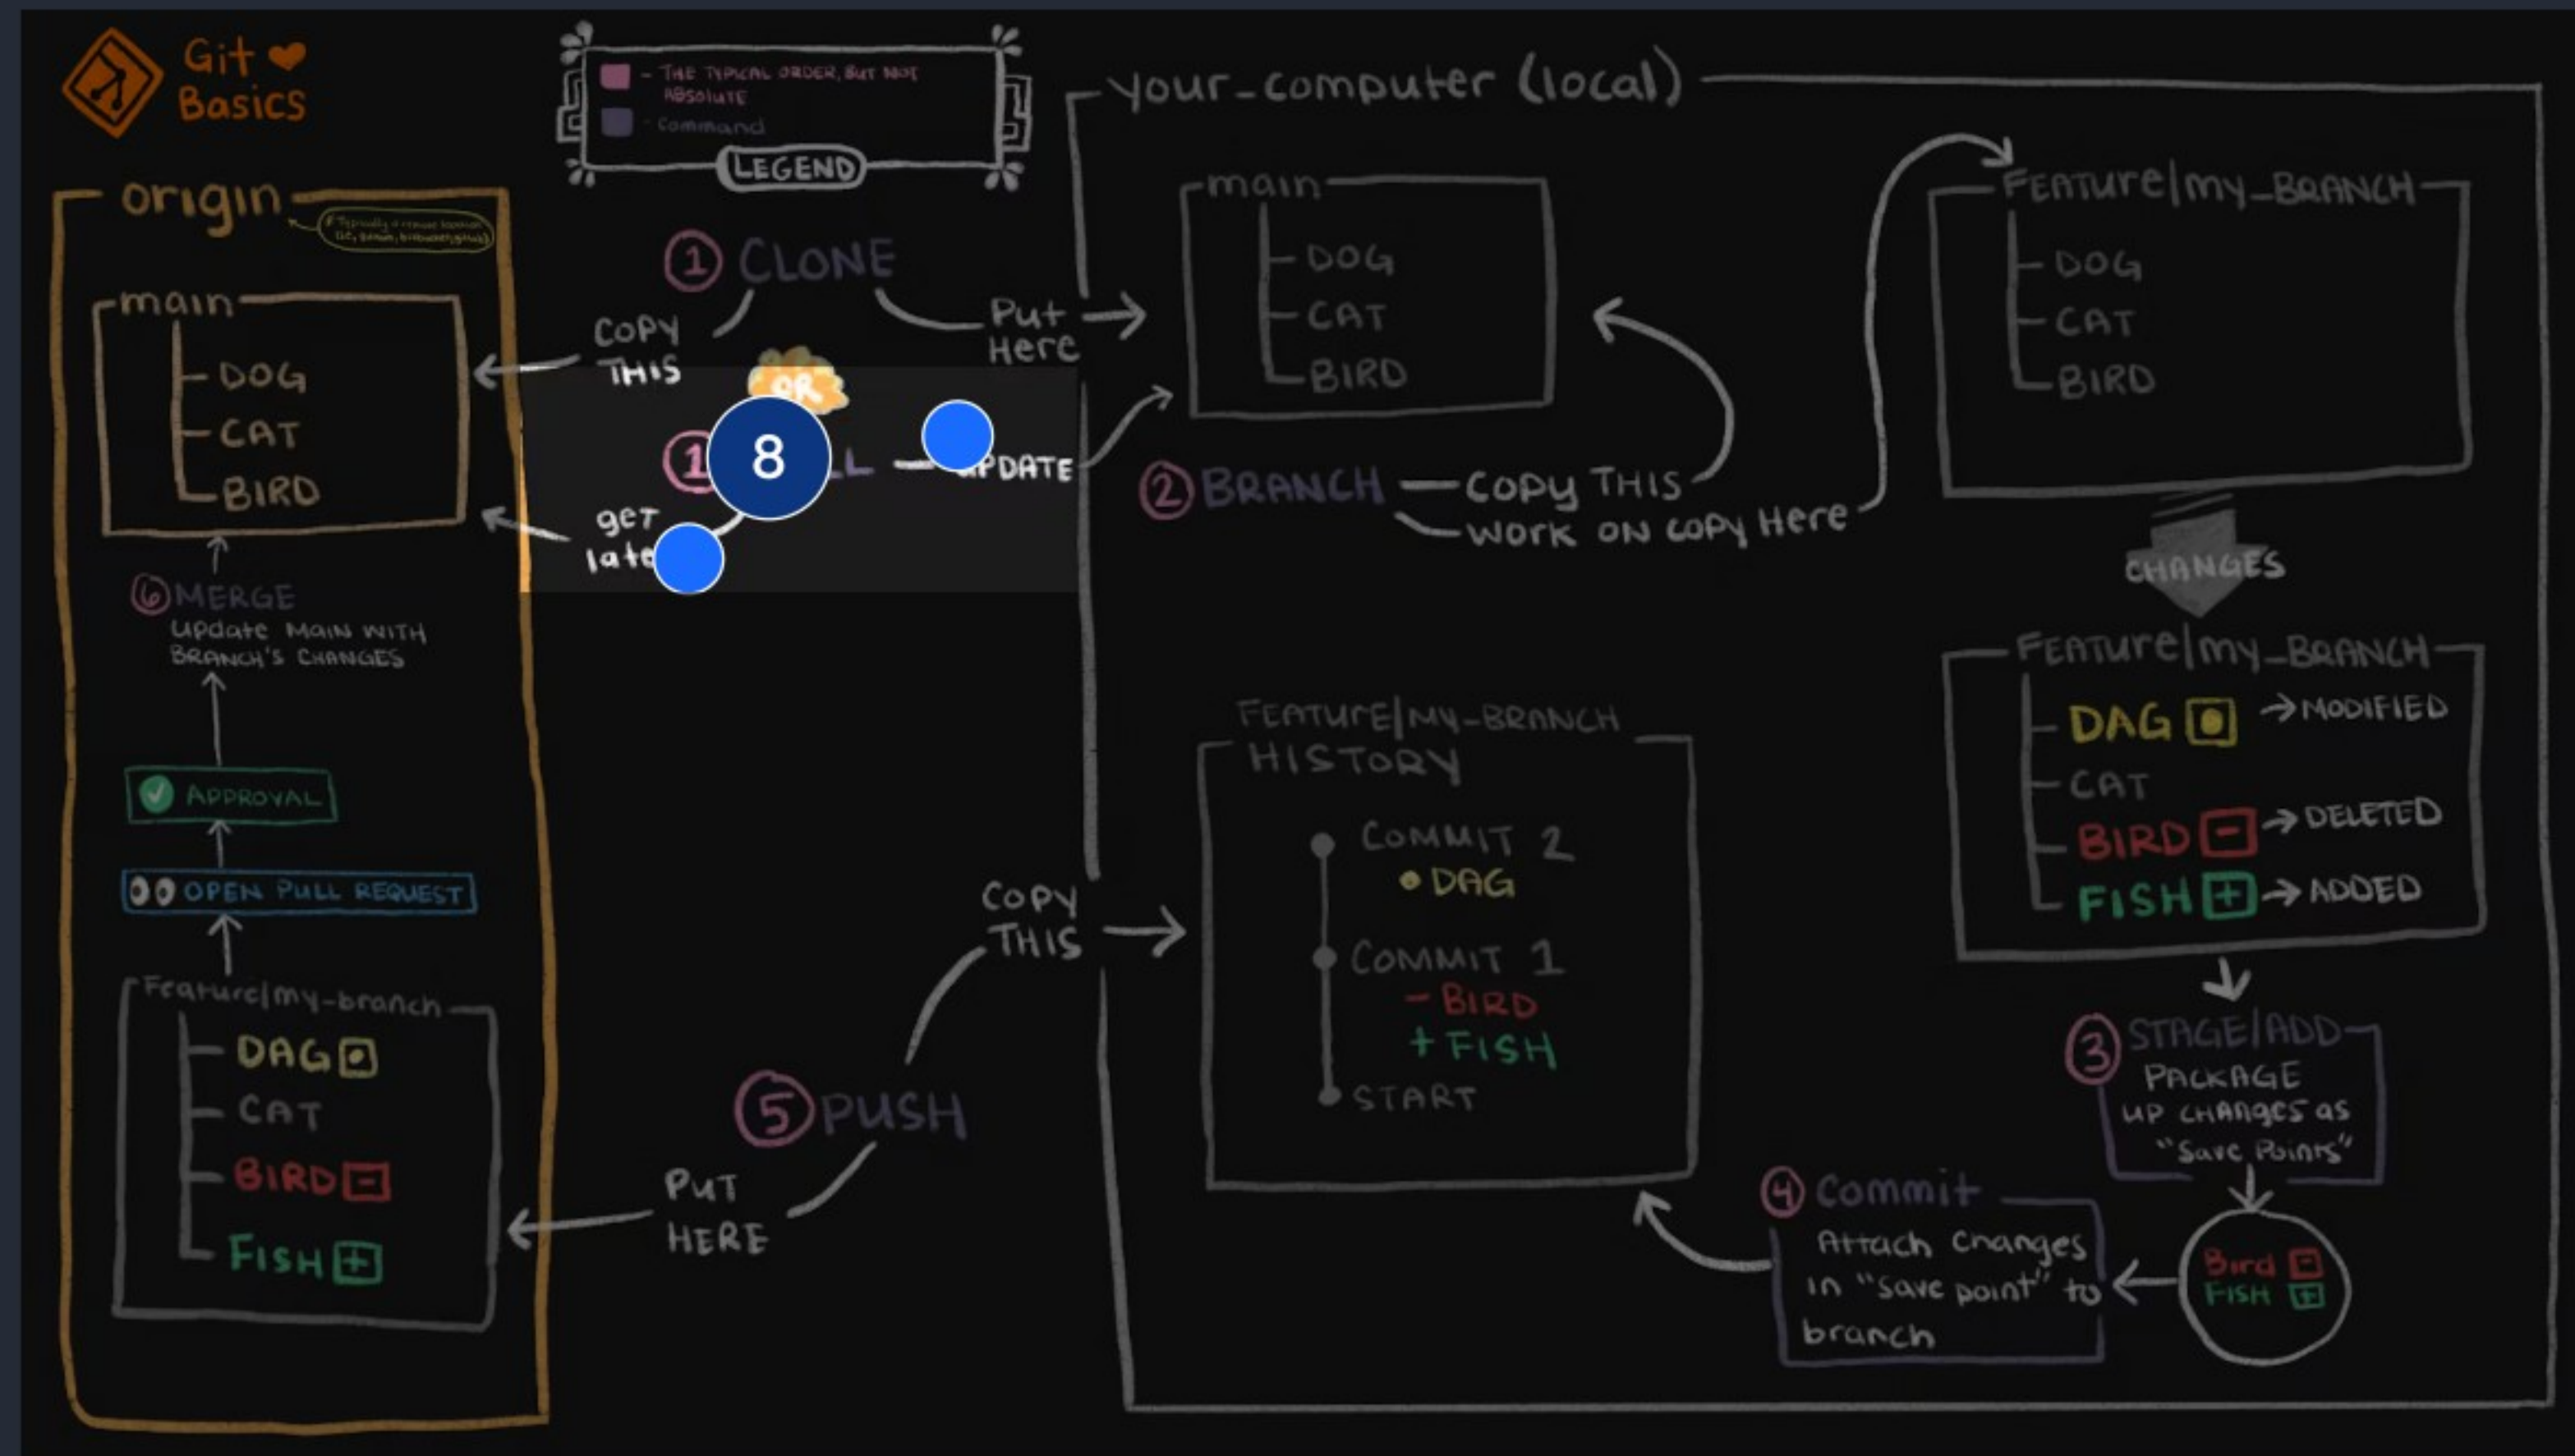 Git ❤
Basics
- THE TYPICAL ORDER, BUT NOT
ABSOLUTE
- Command
LEGEND
origin
main
DOG
CAT
BIRD
⑥ MERGE
update MAIN WITH
BRANCH'S CHANGES
APPROVAL
OPEN PULL REQUEST
Feature/my-branch
DAG
CAT
BIRD -
FISH +
① CLONE
COPY
THIS
Put
Here
OR
8
UPDATE
get
⑤ PUSH
COPY
THIS
PUT
HERE
your_computer (local)
main
DOG
CAT
BIRD
② BRANCH
COPY THIS
WORK ON COPY Here
FEATURE/my_BRANCH
DOG
CAT
BIRD
CHANGES
FEATURE/my_BRANCH
DAG → MODIFIED
CAT
BIRD - → DELETED
FISH + → ADDED
③ STAGE/ADD
PACKAGE
UP CHANGES as
"Save Points"
Bird -
FISH +
④ Commit
Attach Changes
in "save point" to
branch
FEATURE/MY-BRANCH
HISTORY
COMMIT 2
• DAG
COMMIT 1
- BIRD
+ FISH
START